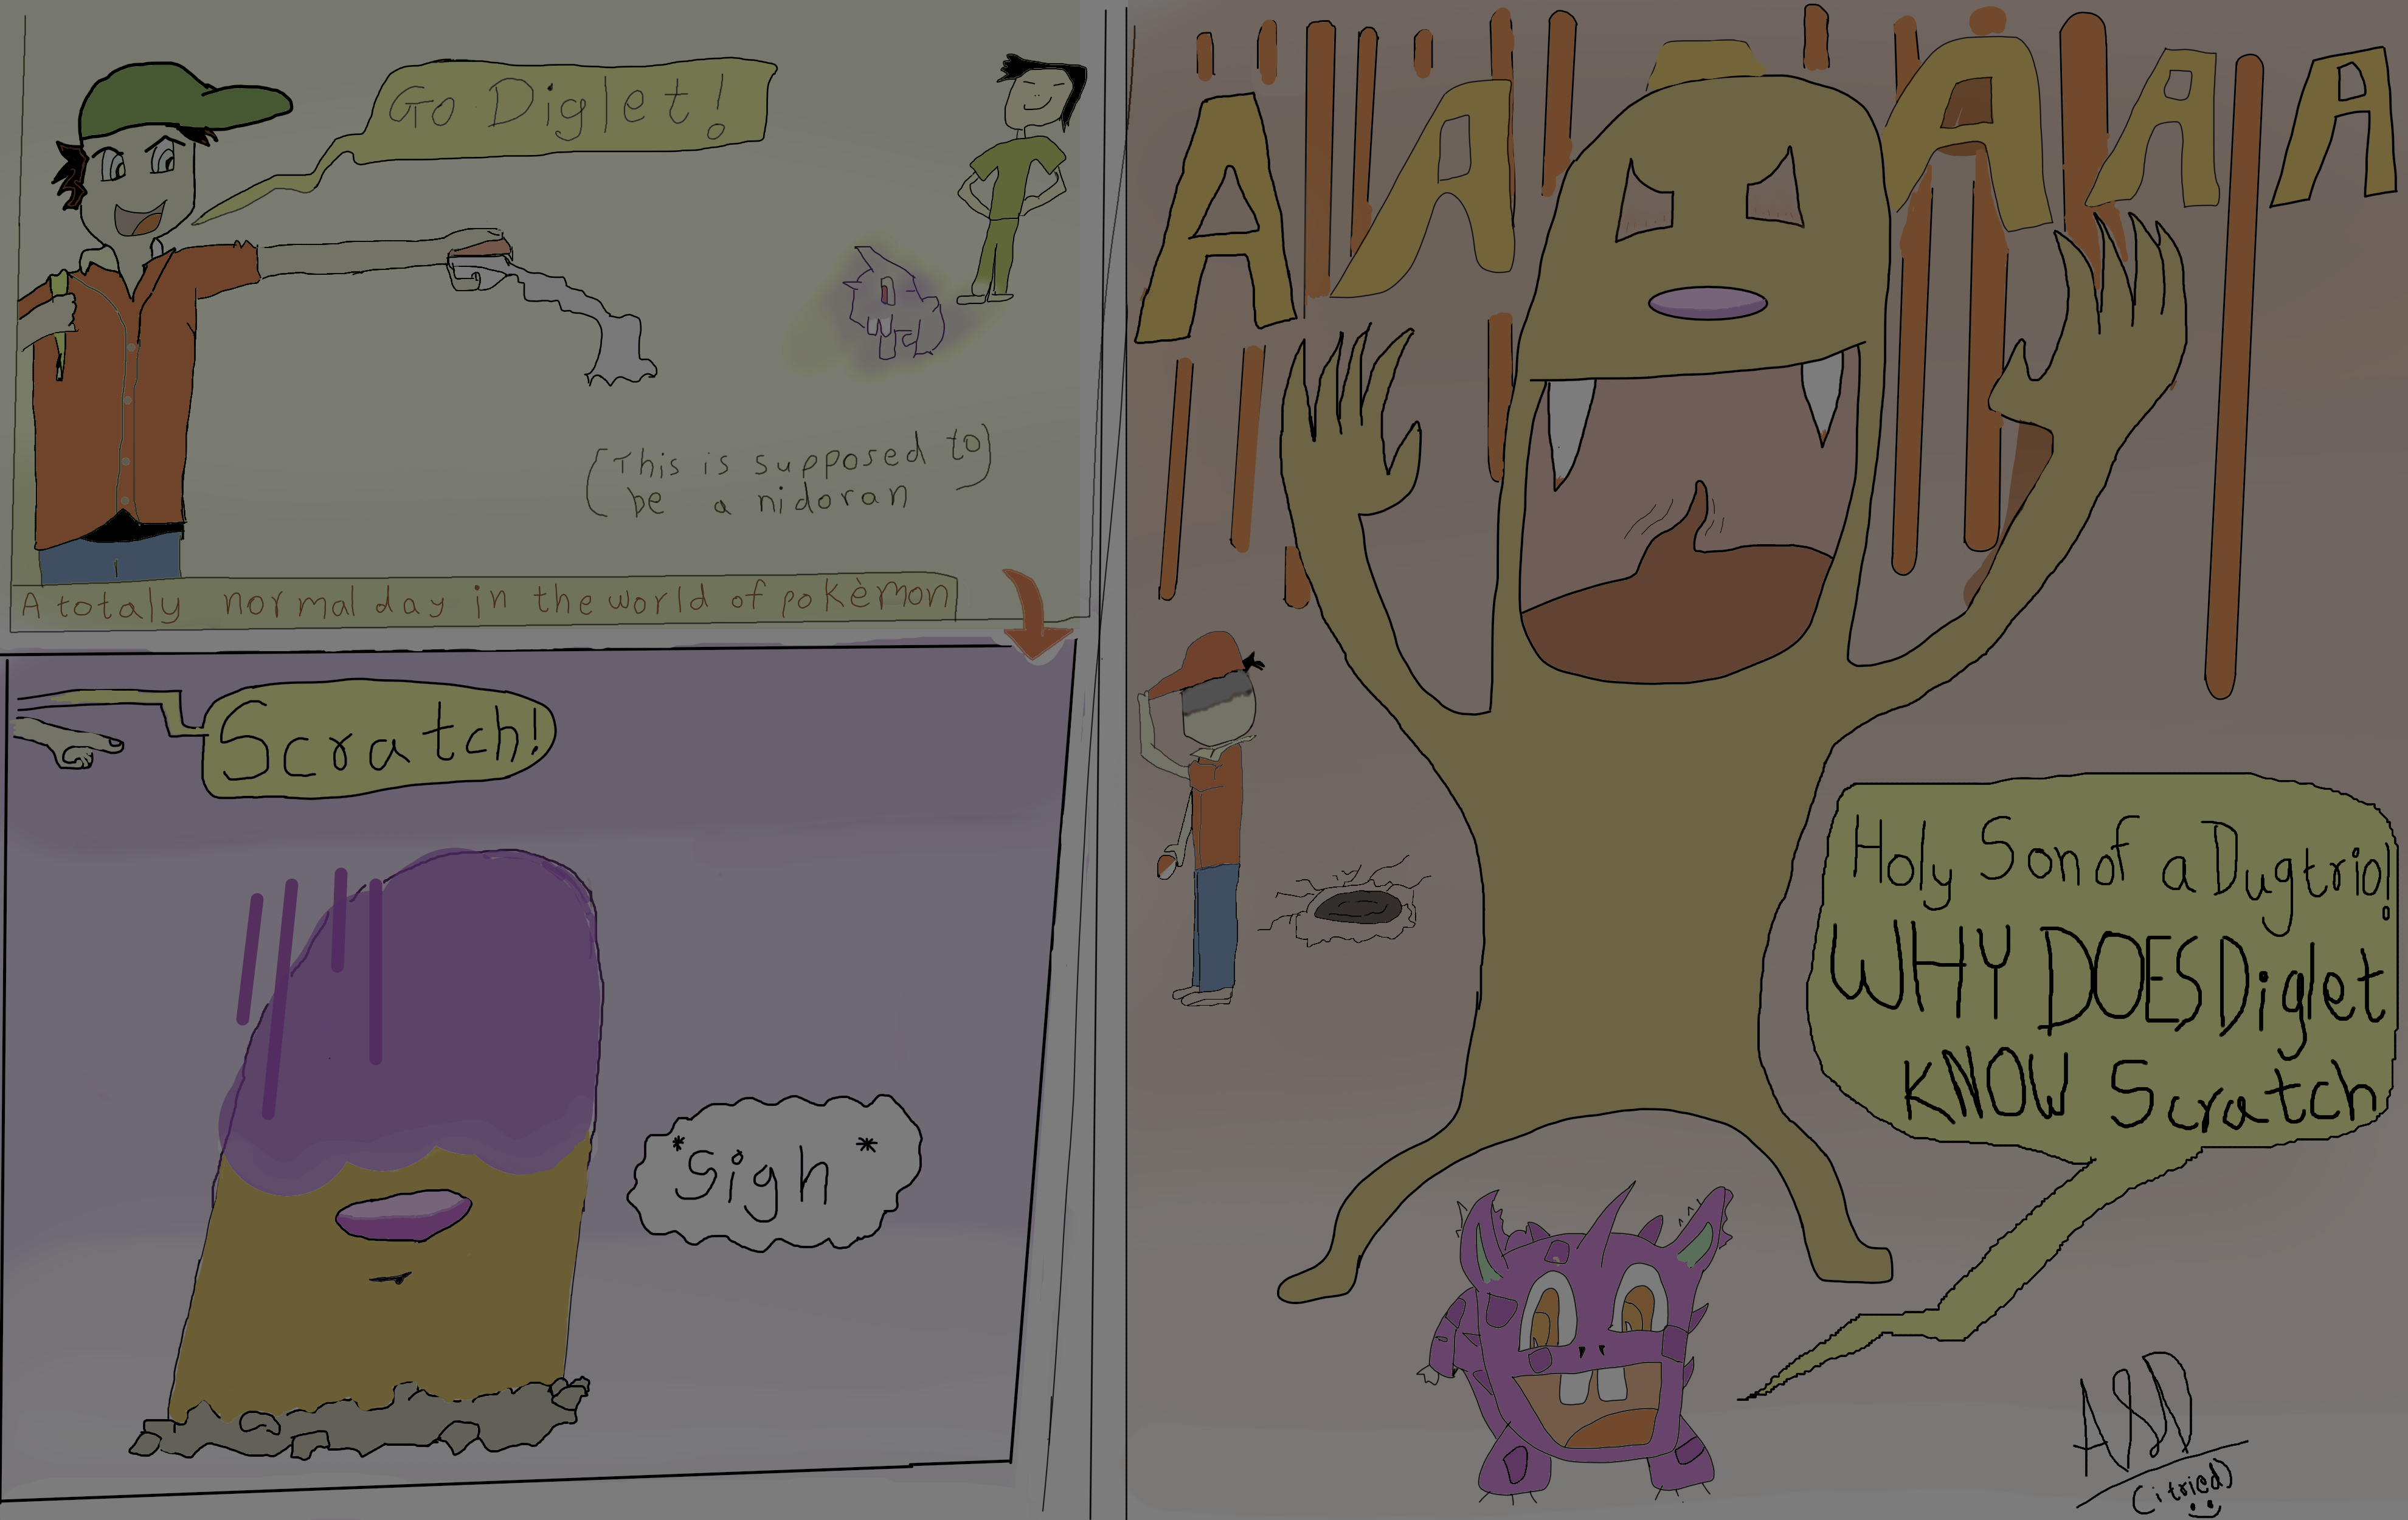 Go Diglet!
(This is supposed to
be a nidoran)
A totaly normal day in the world of pokèmon
Scratch!
*sigh*
AAAAAA
Holy Son of a Dugtrio!
WHY DOES Diglet
KNOW Scratch
ASD
(i tried)